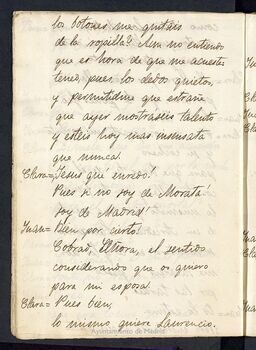 los botones me quitais
de la ropilla? Aun no entiendo
que es hora de que me acueste
tened, pues los dedos quietos,
y permitidme que estrañe
que ayer mostraseis talento
y esteis hoy mas insensata
que nunca!
Clara = Jesus que enredo!
Pues si no soy de Morata!
Soy de Madrid!
Juan = Bien por cierto!
Cobrad, Elvira, el sentido
considerando que os quiero
para mi esposa!
Clara = Pues bien,
lo mismo quiere Laurencio.
Ayuntamiento de Madrid